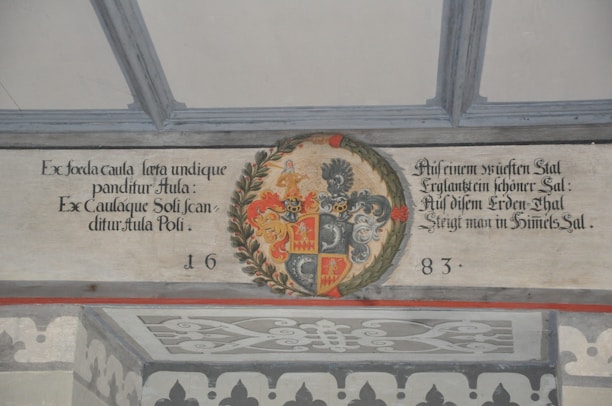 Ex fœda caula læta undique
panditur Aula:
Ex Caulaque Soli scan=
ditur Aula Poli.
Auß einem wüesten Stal
Erglantzt ein schöner Sal:
Auß disem Erden-Thal
Steigt man in Him̅els Sal.
16 83.